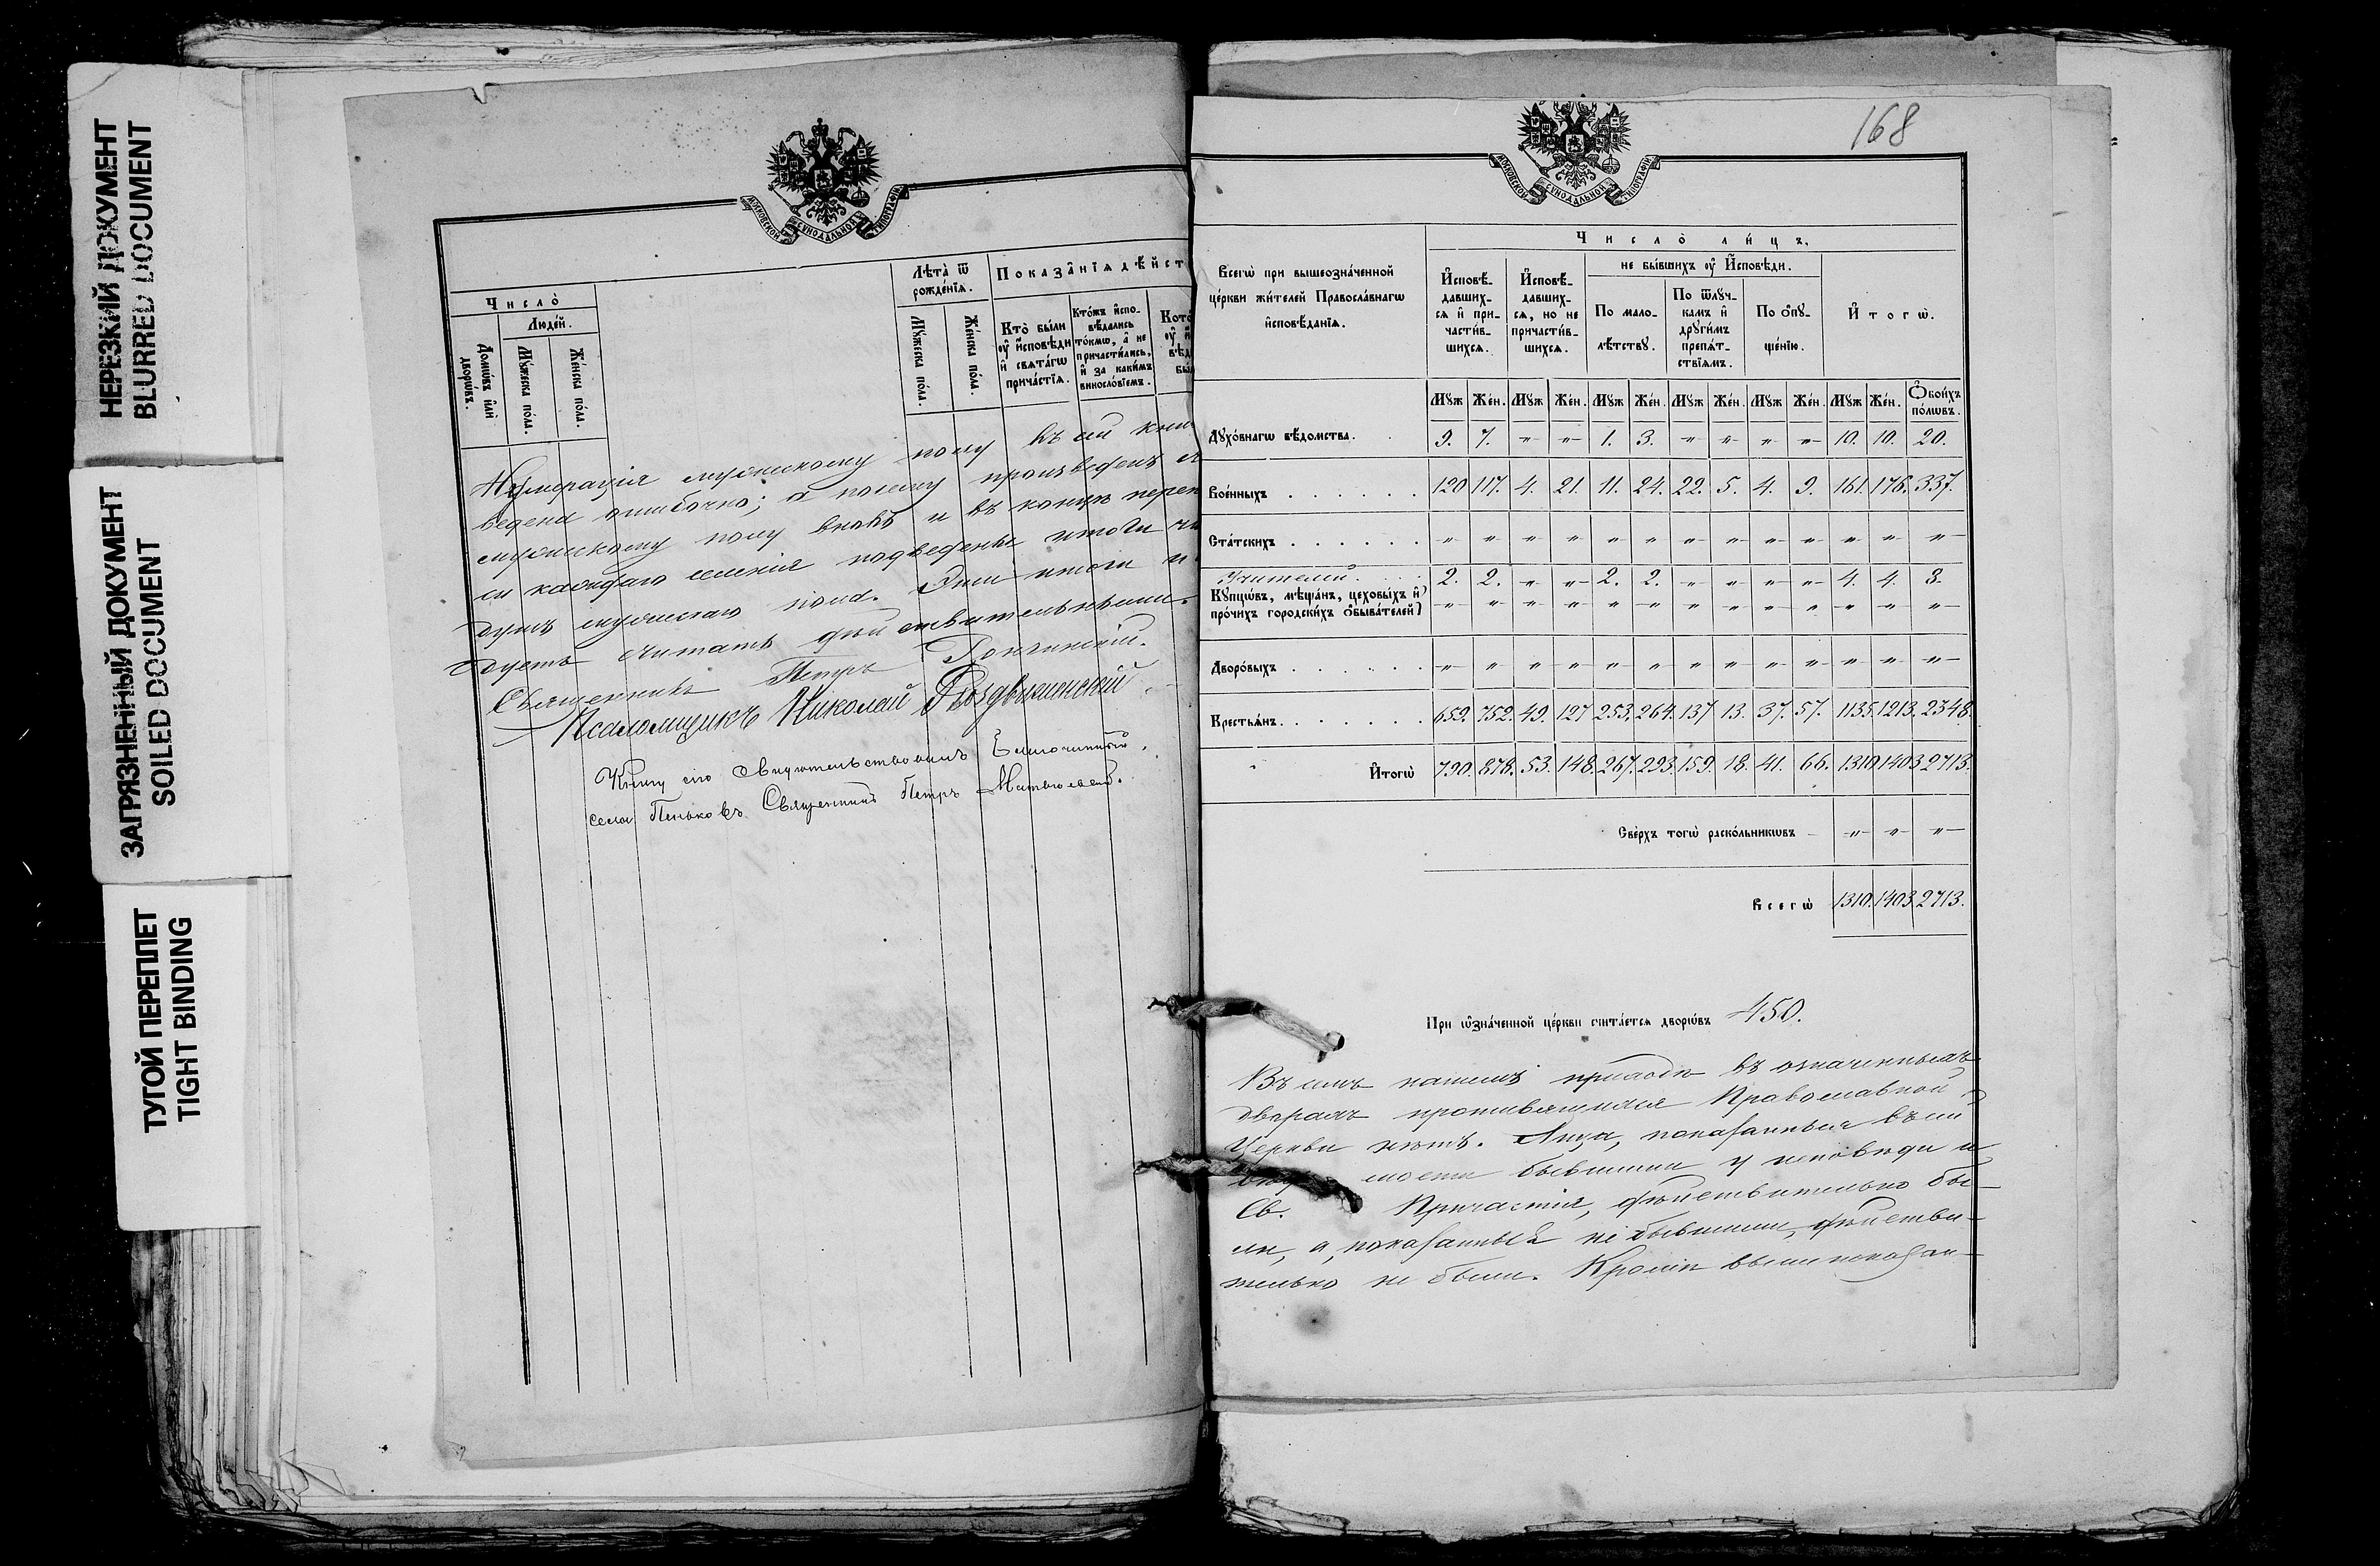 НЕРЕЗКИЙ ДОКУМЕНТ
BLURRED DOCUMENT
ЗАГРЯЗНЕННЫЙ ДОКУМЕНТ
SOILED DOCUMENT
ТУГОЙ ПЕРЕПЛЕТ
TIGHT BINDING
МОСКОВСКОЙ СѴНОДАЛЬНОЙ ТИПОГРАФІИ
Число̀
Люде́й.
Домѡ́въ и҆лѝ дворѡ́въ.
Мꙋ́жеска по́ла.
Же́нска по́ла.
Лѣ́та ѿ рожде́нїѧ.
Мꙋ́жеска по́ла.
Же́нска по́ла.
Показа́нїѧ дѣ́йст
Кто̀ бы́ли оу҆ и҆сповѣди и҆ свѧта́гѡ прича́стїѧ.
Кто́жъ и҆спо-вѣдались то́кмѡ, а҆ не причасти́лись, и҆ за каки́мъ винословїемъ.
Нумерація мужескому полу въ сей кни
ведена ошибочно; а посему произведенъ
мужескому полу вновь и въ концѣ переп
си каждаго селенія подведены итоги чи
душъ мужескаго пола. Эти итоги и
дуетъ считать дѣйствительными.
Священникъ Петръ
Псаломщикъ Николай Воздвиженскій
Книгу сію свидѣтельствовалъ Благочинный,
села Пеньковъ Священникъ Петръ
168
МОСКОВСКОЙ СѴНОДАЛЬНОЙ ТИПОГРАФІИ
Всегѡ̀ при вышеозна́ченной це́ркви жи́телей Правосла́внагѡ и҆сповѣ́данїѧ.
Число̀ ли́цъ.
И҆сповѣ́-давших-сѧ и҆ при-части́в-шихсѧ.
И҆сповѣ́-давших-сѧ, но не причасти́в-шихсѧ.
не бы́вшихъ оу҆ И҆сповѣди.
По мало-лѣ́тствꙋ.
По ѿлꙋч-камъ и҆ дрꙋги́мъ препѧ́т-ствїѧмъ.
По ѻ҆пꙋ-ще́нїю.
И҆тогѡ̀.
Мꙋж Же́н. Мꙋж Же́н. Мꙋж Же́н. Мꙋж Же́н. Мꙋж Же́н. Мꙋж Же́н. Ѻ҆бои́хъ по́лѡвъ.
Дꙋхо́внагѡ вѣ́домства. 9. 7. „ „ 1. 3. „ „ „ „ 10. 10. 20.
Вое́нныхъ 120 117. 4. 21. 11. 24. 22. 5. 4. 9. 161. 176. 337.
Ста́тскихъ „ „ „ „ „ „ „ „ „ „ „ „ „
Учителей. 2. 2. „ „ 2. 2. „ „ „ „ 4. 4. 8.
Кꙋпцѡ́въ, мѣща́нъ, цеховы́хъ и҆ про́чихъ городски́хъ ѻ҆быва́телей „ „ „ „ „ „ „ „ „ „ „ „ „
Дворо́выхъ „ „ „ „ „ „ „ „ „ „ „ „ „
Крестьѧ́нъ 659. 752. 49. 127 253. 264. 137 13. 37. 57. 1135. 1213. 2348.
И҆тогѡ̀ 790. 878. 53. 148. 267. 293. 159. 18. 41. 66. 1310 1403 2713.
Све́рхъ тогѡ̀ раско́льникѡвъ „ „ „
Всегѡ̀ 1310. 1403 2713.
При ѡ҆зна́ченной це́ркви счита́етсѧ дворѡ́въ 450.
Въ семъ нашемъ приходѣ въ означенныхъ
дворахъ противящихся Православной
Церкви нѣтъ. Лица, показанныя въ сей
мости бывшими у исповѣди и
Св. Причастія, дѣйствительно бы-
ли, а показанныя не бывшими, дѣйстви-
тельно не были. Кромѣ вышепоказан-